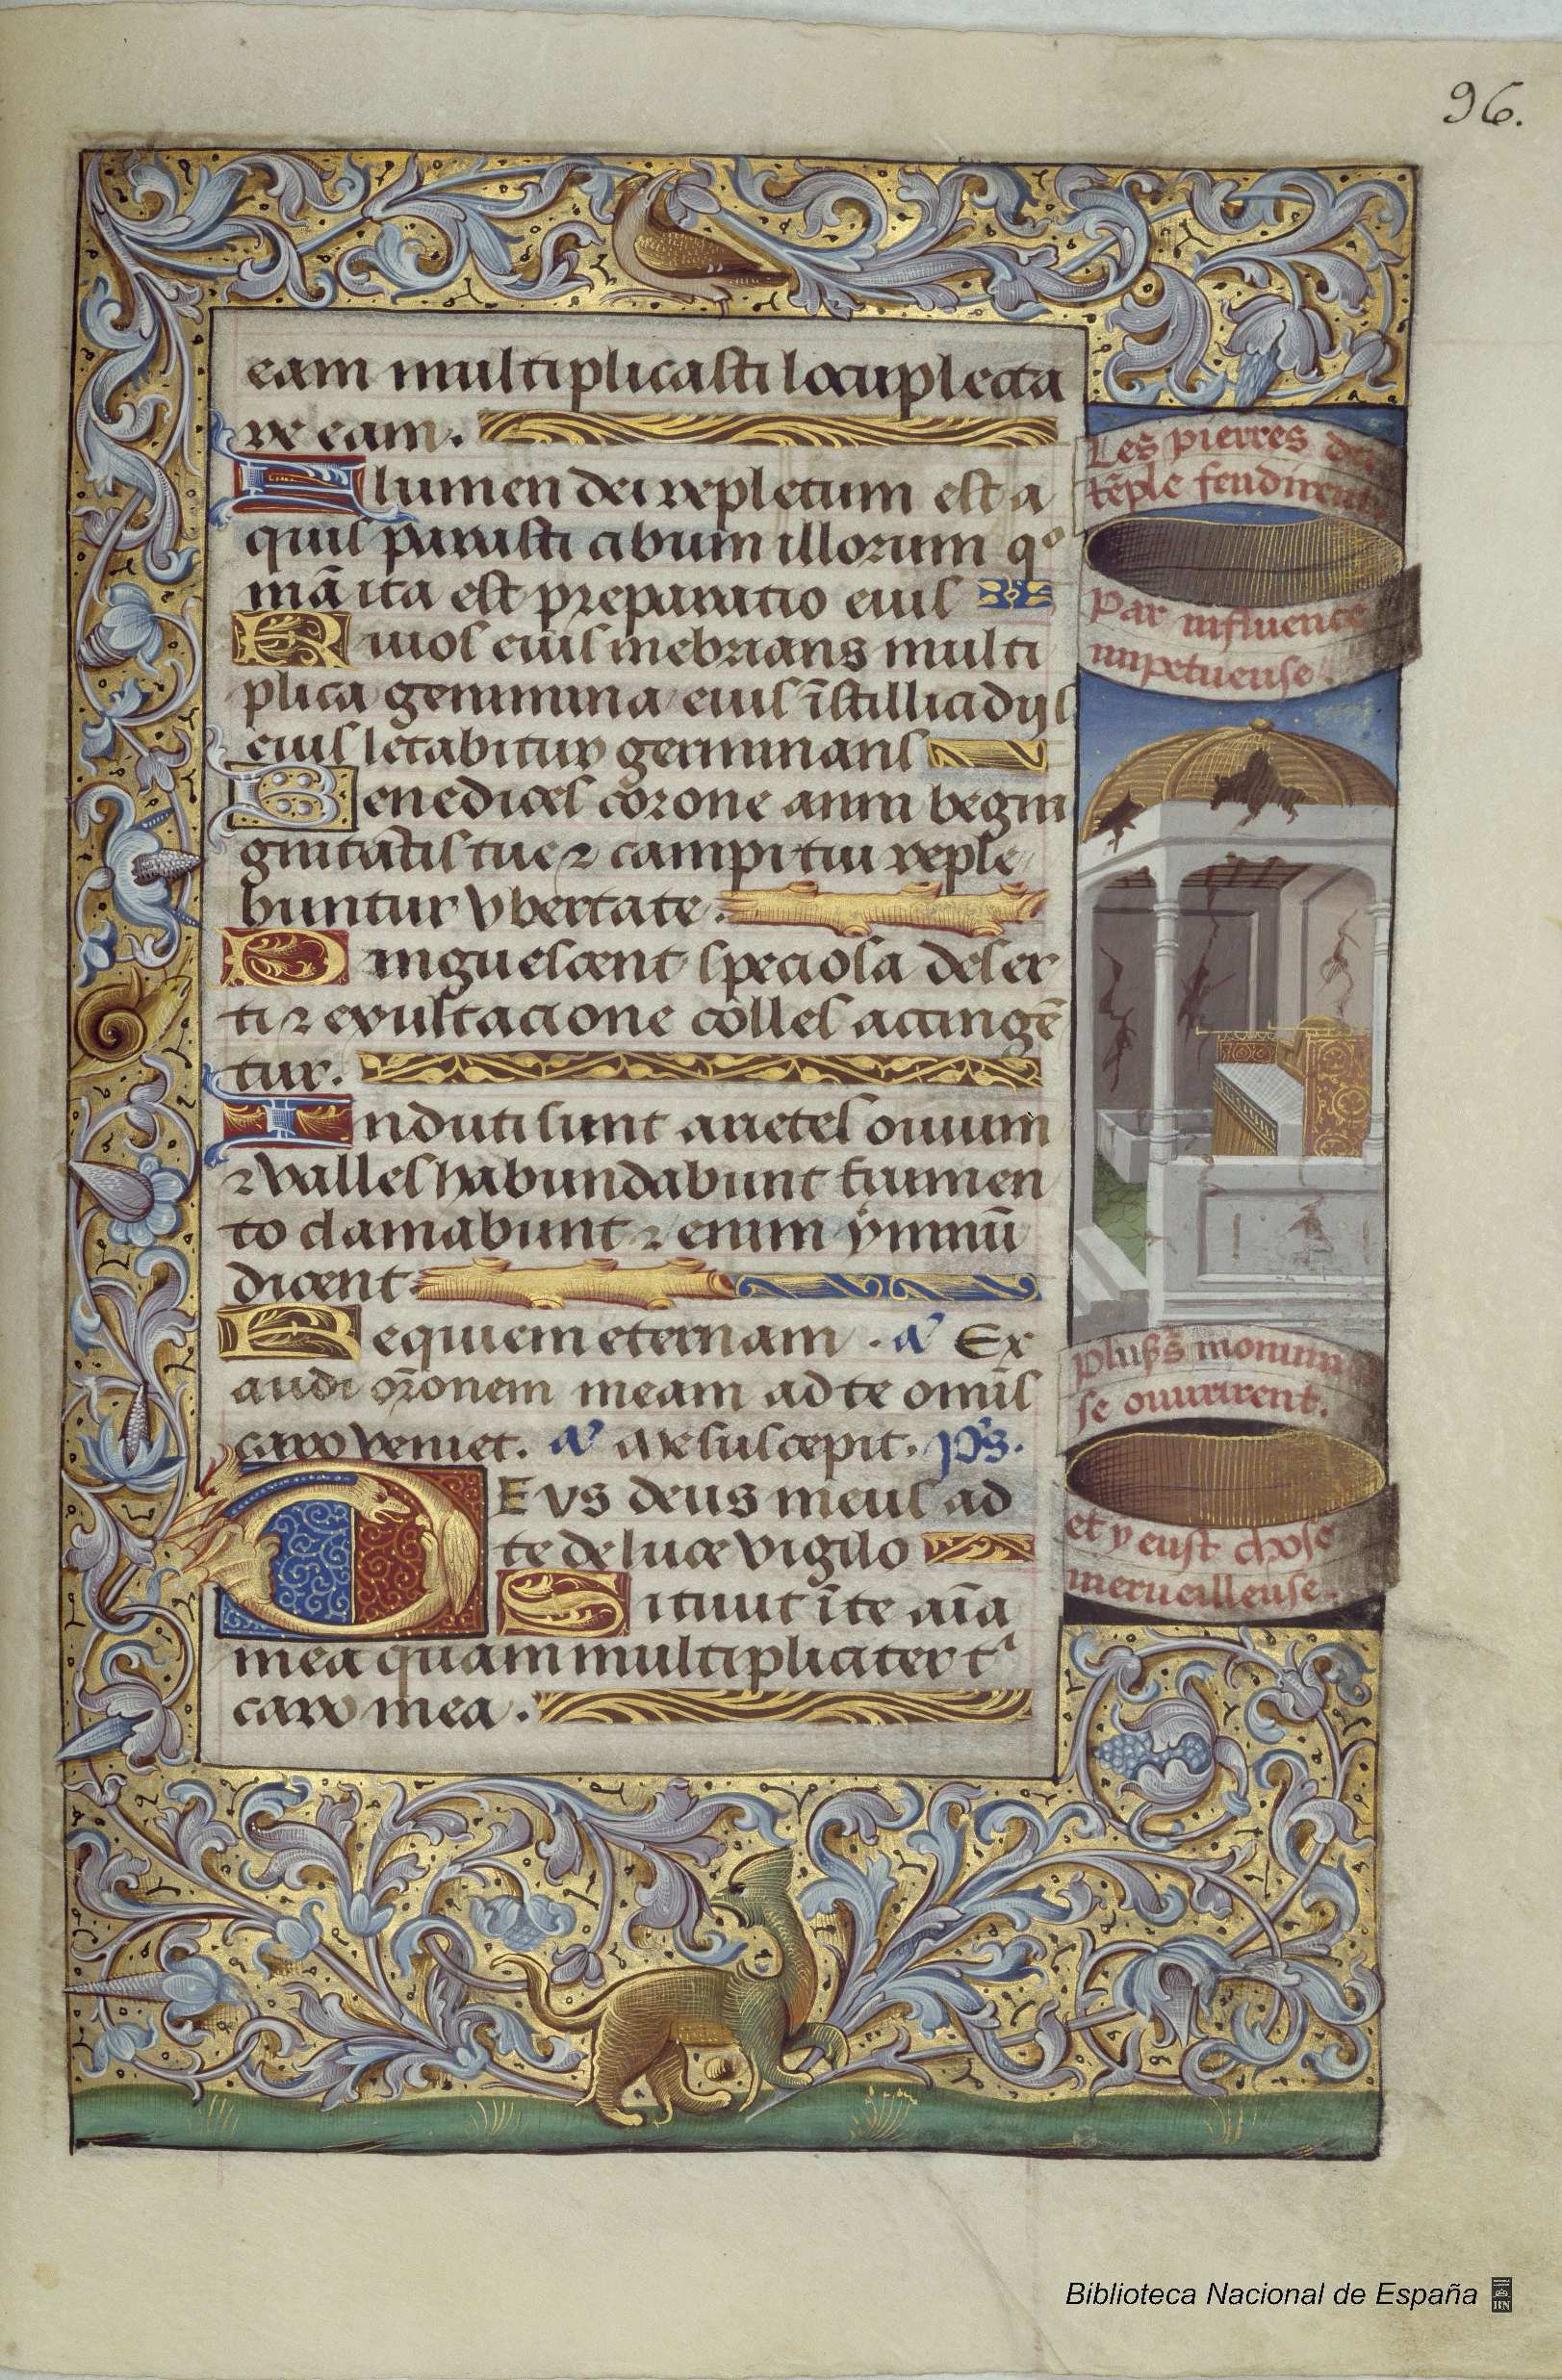 96.
eam multiplicasti locuplecta
re eam.
Flumen dei repletum est a
quis parasti cibum illorum qº
mā ita est preparatio eius
Riuos eius inebrians multi
plica genimina eius īstillicidijs
eius letabitur germinans
Benedices corone anni begni
gnitatis tue ⁊ campi tui reple
buntur vbertate.
Pinguescent speciosa deser
ti ⁊ exultacione colles accingē
tur.
Induti sunt arietes ouium
⁊ valles habundabunt frumen
to clamabunt ⁊ enim ymnū
dicent.
Requiem eternam. a᷎ Ex
audi or̄onem meam ad te omīs
caro veniet. a᷎ Me suscepit. p̄s.
DEvs deus meus ad
te de luce vigilo
Sitiuit ī te aīa
mea quam multipliciter t
caro mea.
Les pierres du
tēple fendirent
par influence
impetueuse.
plus̄s monum
se ouurirent.
et y eust chose
merueilleuse.
Biblioteca Nacional de España